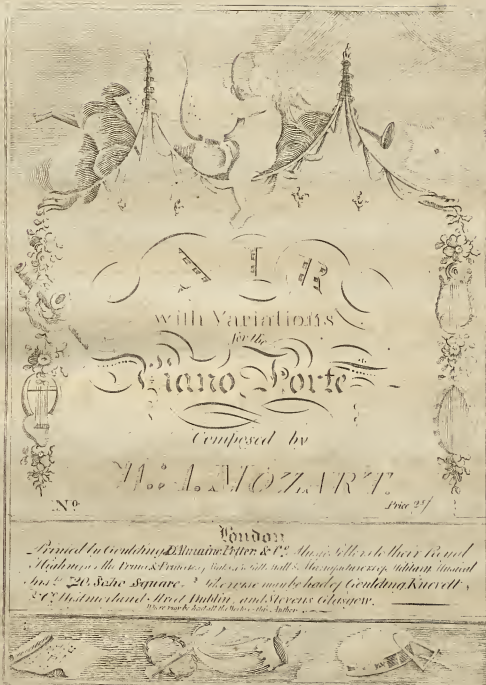 AIR
with Variations
for the
Piano Forte
Composed by
W. A. MOZART.
No Price 2s/
London
Printed by Goulding, D'Almaine, Potter & Co. Music Sellers to their Royal
Highnesses the Prince & Princess of Wales & Manufacturers of Military Musical
Inst.ts 20, Soho Square. & likewise may be had of Goulding, Knevett,
& Co. Westmorland Street Dublin, and Stevens Glasgow.
Where may be had all the Works of this Author